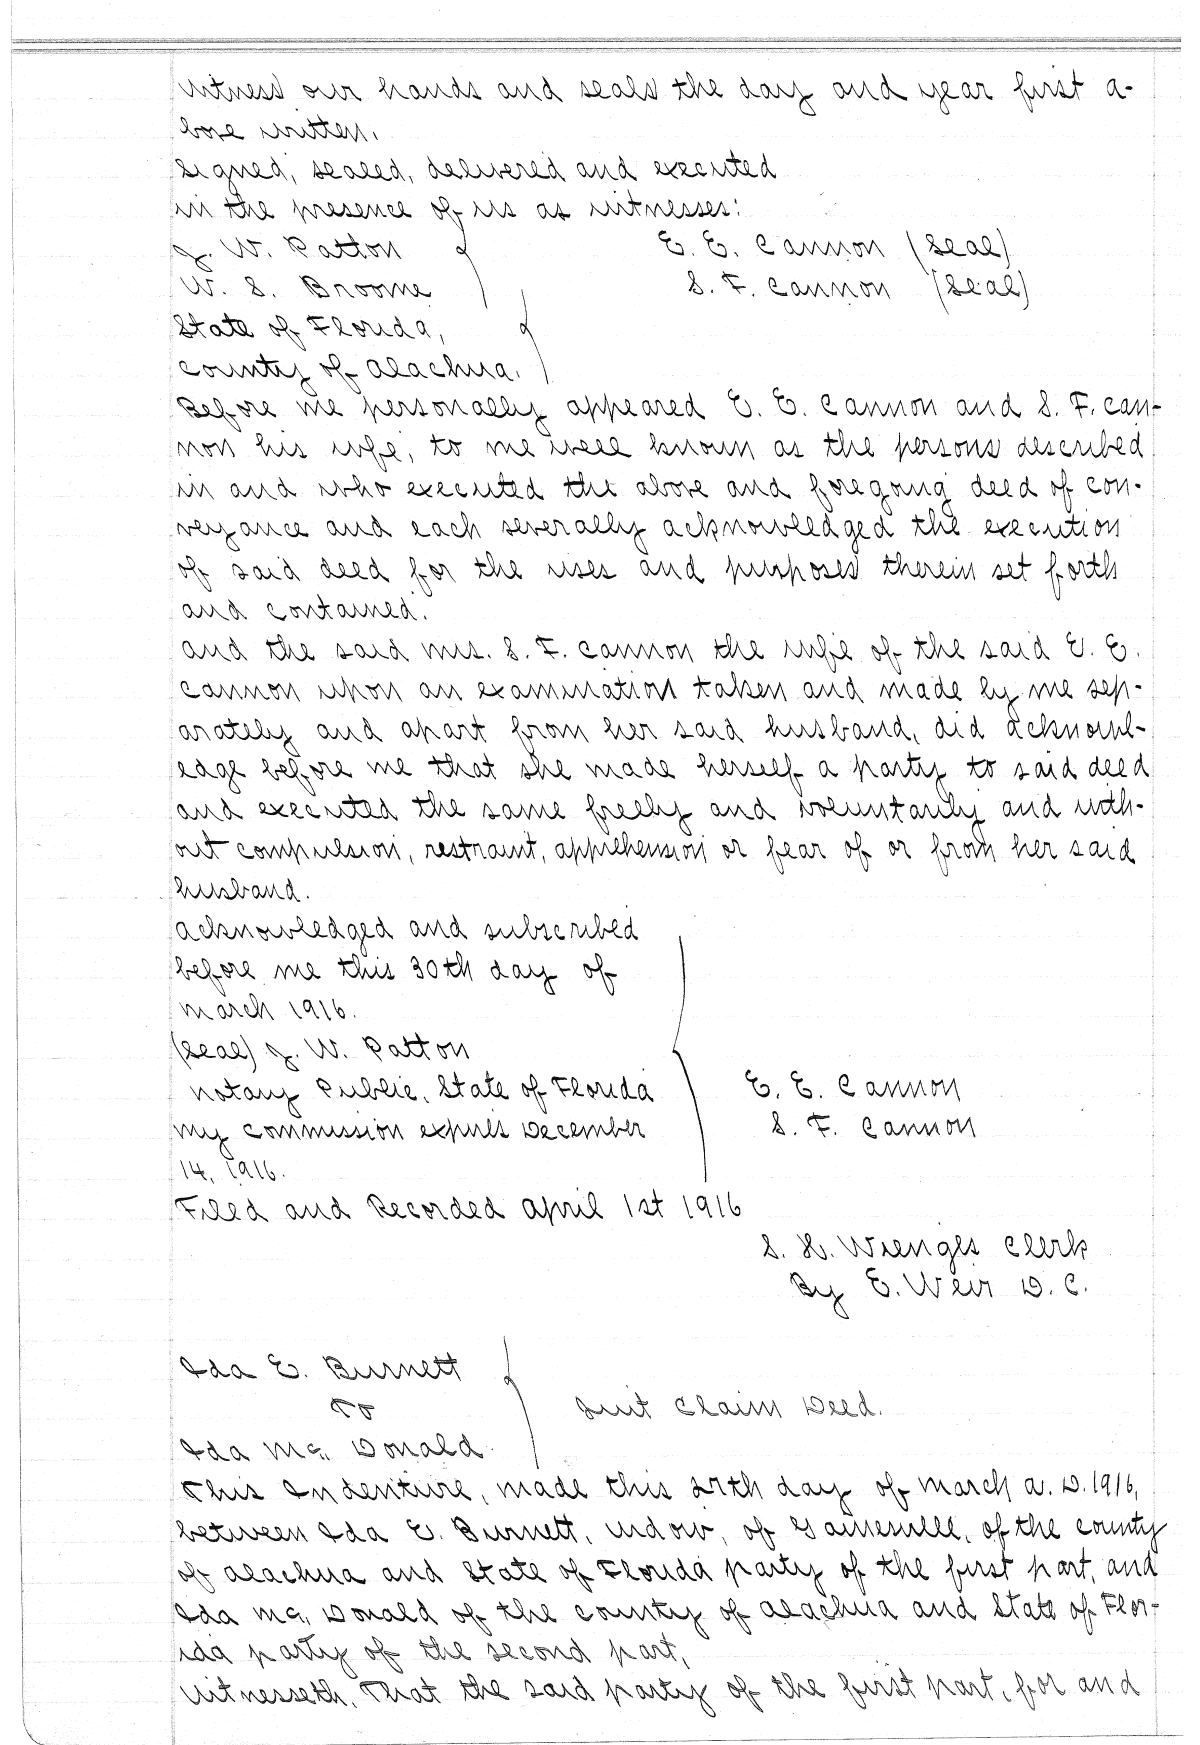 witness our hands and seals the day and year first a-
bove written.
Signed, sealed, delivered and executed
in the presence of us as witnesses:
J. W. Patton E. E. Cannon (Seal)
W. S. Broome S. F. Cannon (Seal)
State of Florida,
County of Alachua.
Before me personally appeared E. E. Cannon and S. F. Can-
non his wife, to me well known as the persons described
in and who executed the above and foregoing deed of con-
veyance and each severally acknowledged the execution
of said deed for the uses and purposes therein set forth
and contained.
And the said Mrs. S. F. Cannon the wife of the said E. E.
Cannon upon an examination taken and made by me sep-
arately and apart from her said husband, did acknowl-
edge before me that she made herself a party to said deed
and executed the same freely and voluntarily and with-
out compulsion, restraint, apprehension or fear of or from her said
husband.
Acknowledged and subscribed
before me this 30th day of
March 1916.
(Seal) J. W. Patton
Notary Public, State of Florida E. E. Cannon
My commission expires December S. F. Cannon
14, 1916.
Filed and Recorded April 1st 1916
S. H. Wienges Clerk
By E. Weir D. C.
Ida E. Burnett
To Quit Claim Deed.
Ida Mc. Donald
This Indenture, made this day of March A. D. 1916,
between Ida E. Burnett, widow, of Gainesville, of the County
of Alachua and State of Florida party of the first part, and
Ida Mc. Donald of the County of Alachua and State of Flor-
ida party of the second part,
Witnesseth, That the said party of the first part, for and